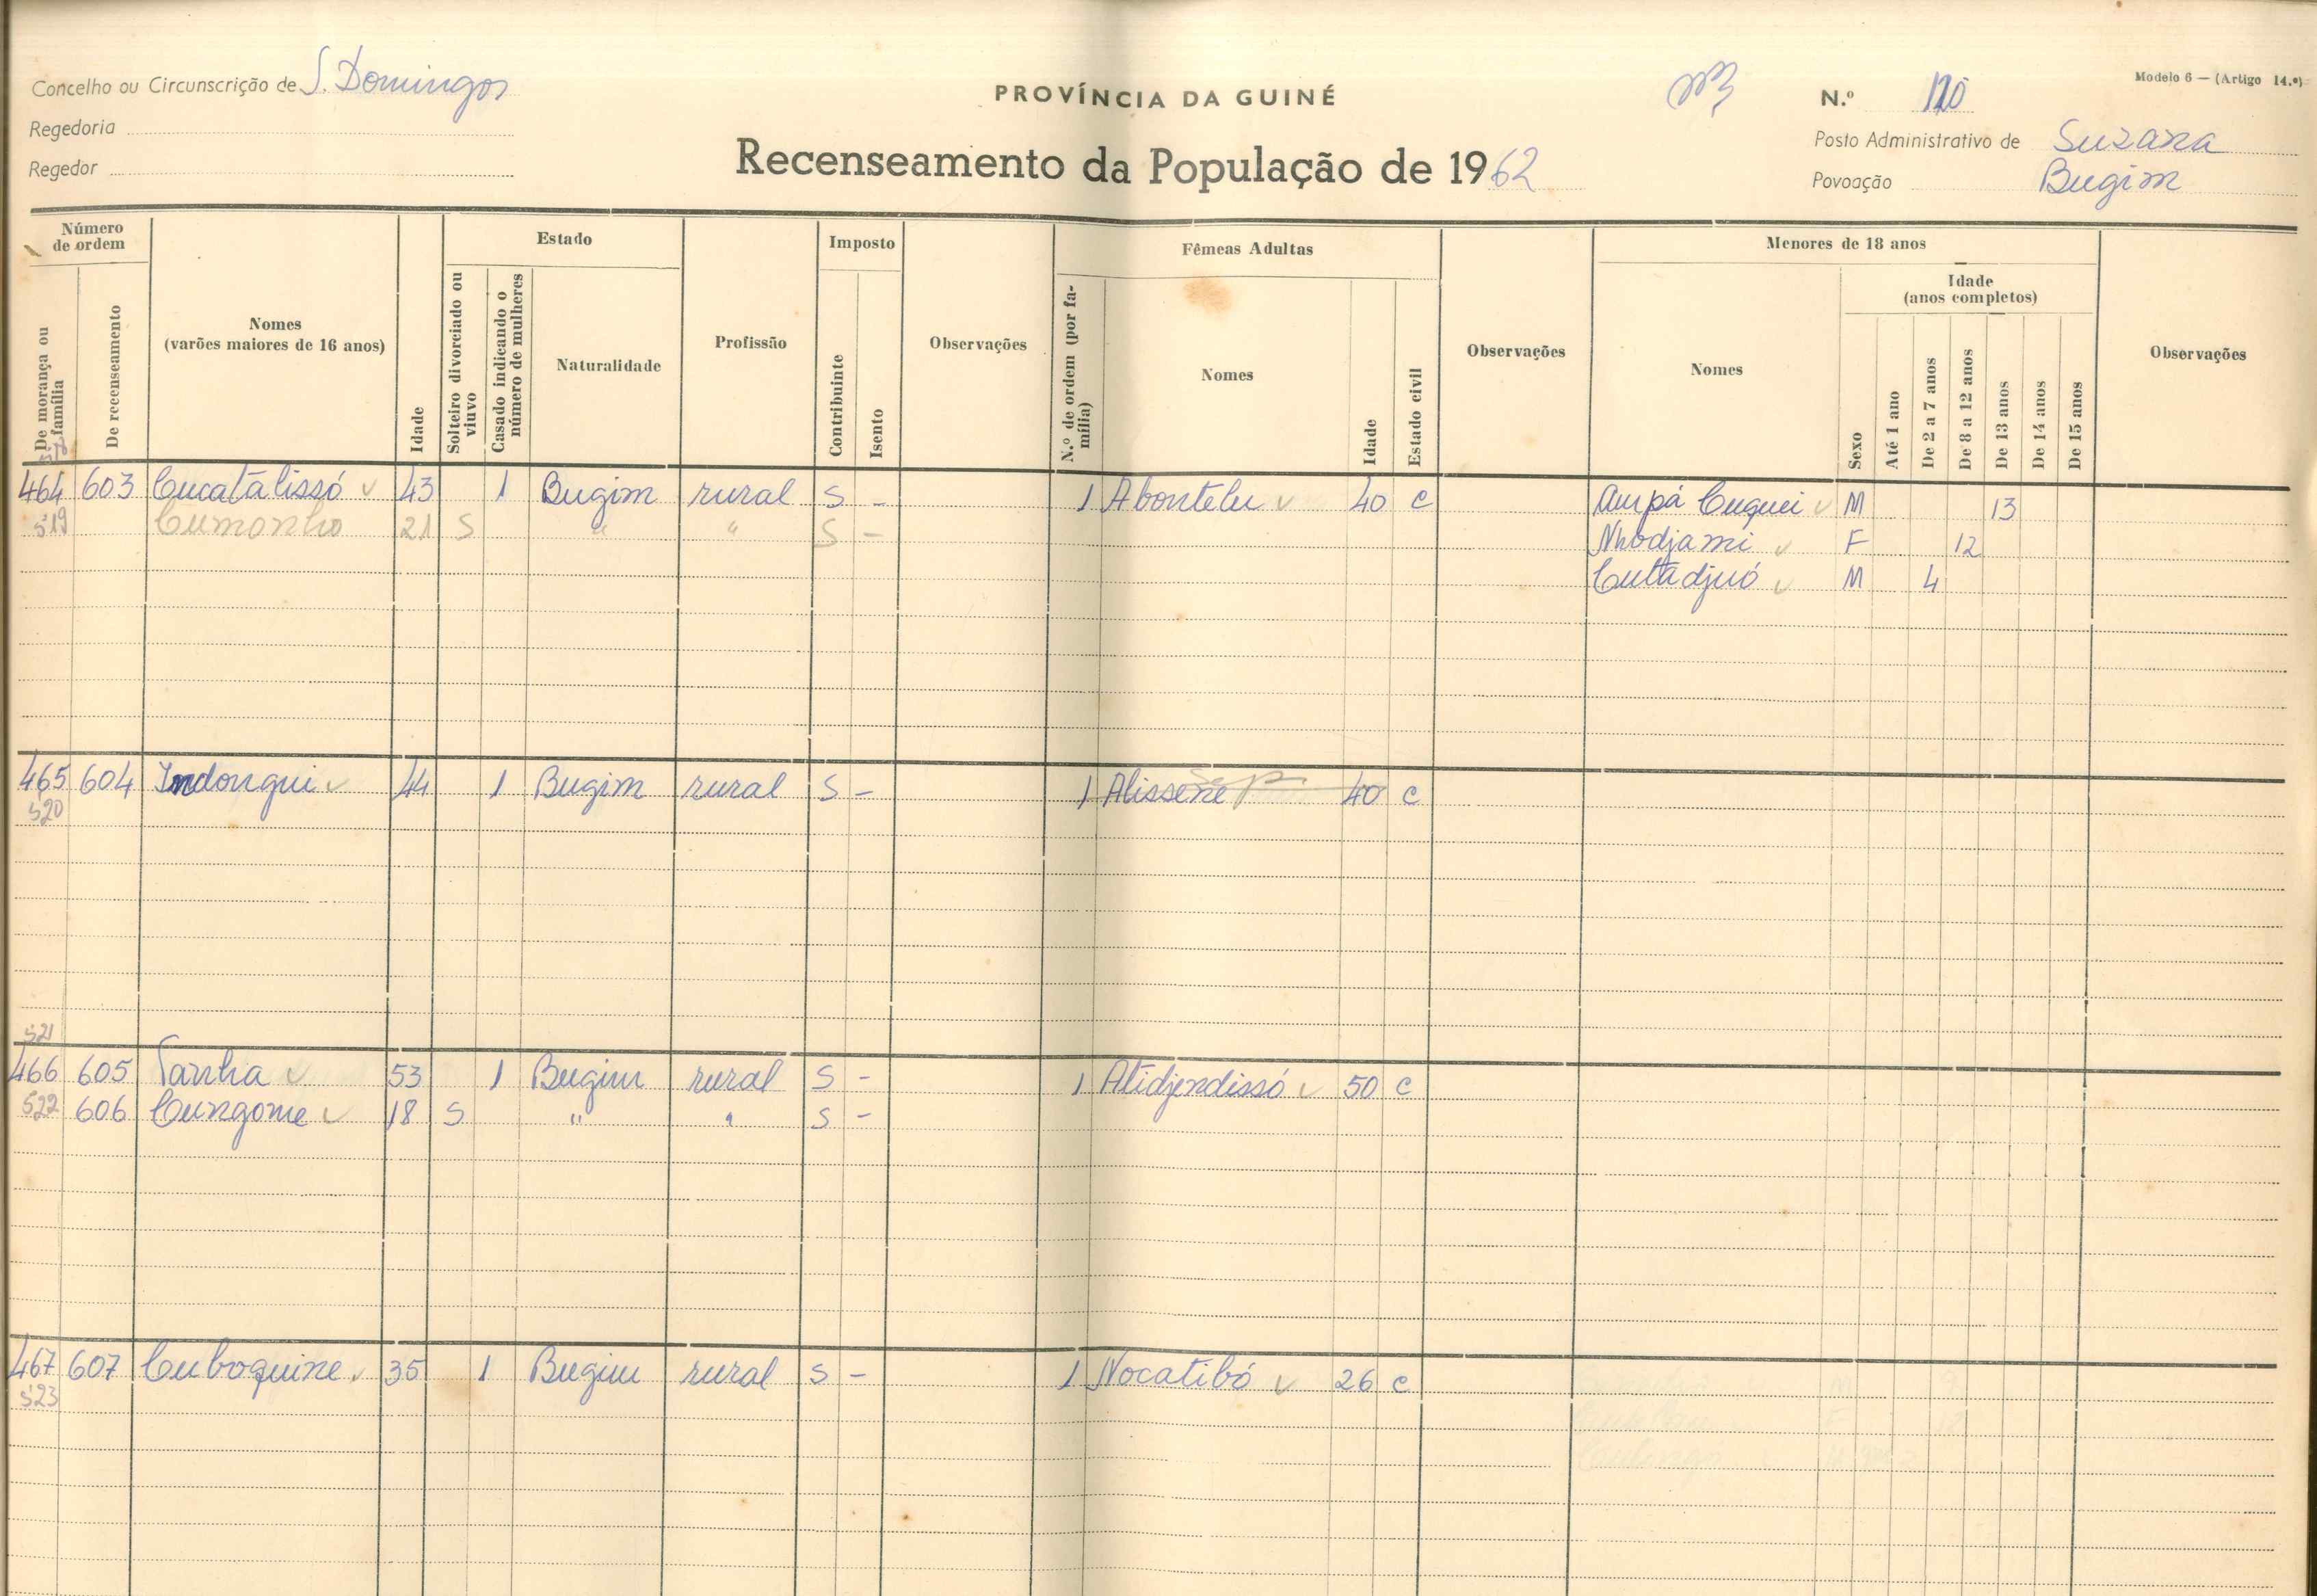 Concelho ou Circunscrição de S. Domingos
Regedoria
Regedor
PROVÍNCIA DA GUINÉ
Recenseamento da População de 1962
Modelo 6 — (Artigo 14.º)
N.º 120
Posto Administrativo de Suzana
Povoação Bugim
Número de ordem
De morança ou família
De recenseamento
Nomes
(varões maiores de 16 anos)
Idade
Estado
Solteiro divorciado ou viuvo
Casado indicando o número de mulheres
Naturalidade
Profissão
Imposto
Contribuinte
Isento
Observações
Fêmeas Adultas
N.º de ordem (por família)
Nomes
Idade
Estado civil
Observações
Menores de 18 anos
Nomes
Sexo
Idade
(anos completos)
Até 1 ano
De 2 a 7 anos
De 8 a 12 anos
De 13 anos
De 14 anos
De 15 anos
Observações
518
464 603 Cucatalissó 43 1 Bugim rural S - 1 Abontelu 40 C Ampá Cuquei M 13
519 Cumonho 21 S " " S - Nhodjami F 12
Cutadjuó M 4
465 604 Indongui 44 1 Bugim rural S - 1 Alissene 40 C
520
521
466 605 Tanha 53 1 Bugim rural S - 1 Atidjendissó 50 C
522 606 Cungome 18 S " " S -
467 607 Cuboquine 35 1 Bugim rural S - 1 Nocatibó 26 C
523